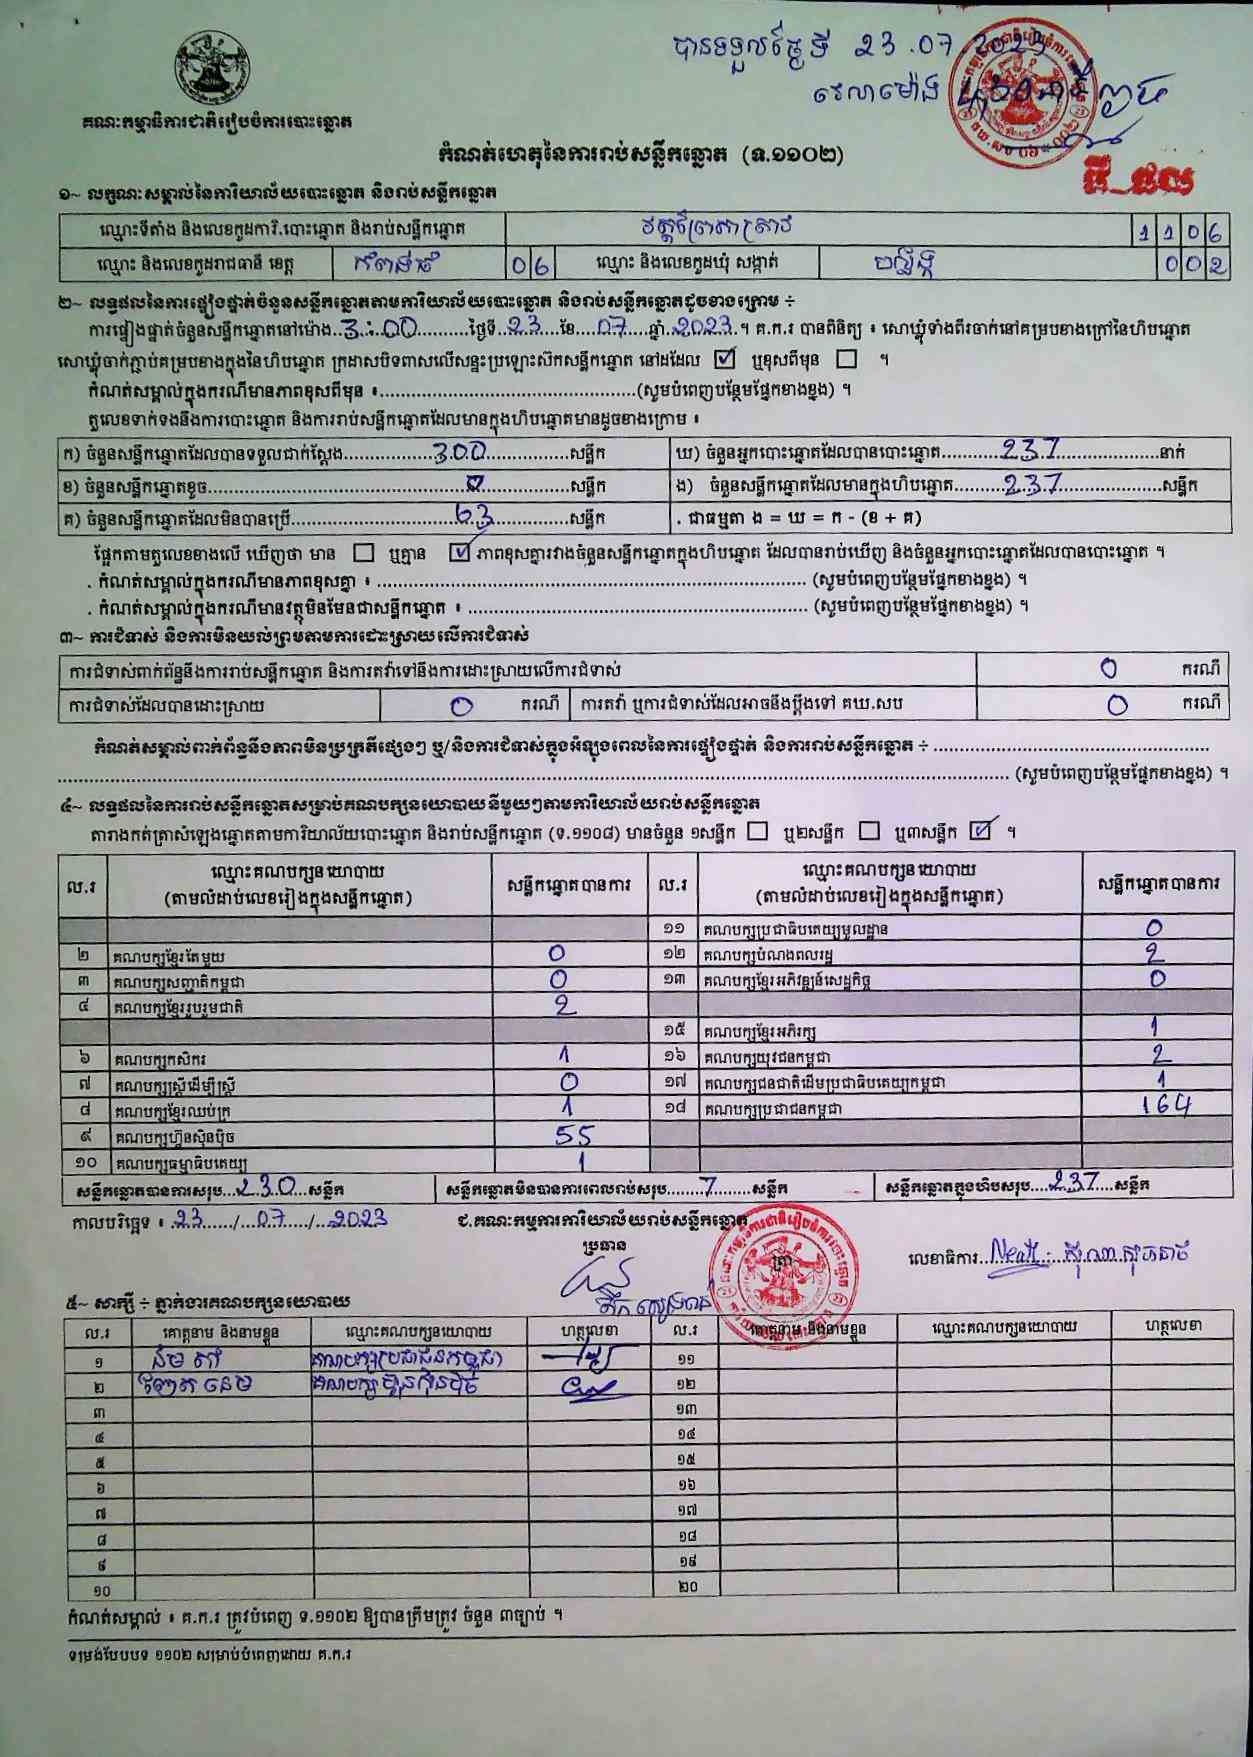 បានទទួលថ្ងៃទី 23.07.2023
វេលាម៉ោង
គណៈកម្មាធិការជាតិរៀបចំការបោះឆ្នោត
កំណត់ហេតុនៃការរាប់សន្លឹកឆ្នោត (ទ.១១០២)
ធី_ផល
១~ លក្ខណៈសម្គាល់នៃការិយាល័យបោះឆ្នោត និងរាប់សន្លឹកឆ្នោត
ឈ្មោះទីតាំង និងលេខកូដការិ.បោះឆ្នោត និងរាប់សន្លឹកឆ្នោត 1106
ឈ្មោះ និងលេខកូដរាជធានី ខេត្ត កំពង់ធំ 06 ឈ្មោះ និងលេខកូដឃុំ សង្កាត់ បល្ល័ង្ក 002
២~ លទ្ធផលនៃការផ្ទៀងផ្ទាត់ចំនួនសន្លឹកឆ្នោតតាមការិយាល័យបោះឆ្នោត និងរាប់សន្លឹកឆ្នោតដូចខាងក្រោម ÷
ការផ្ទៀងផ្ទាត់ចំនួនសន្លឹកឆ្នោតនៅម៉ោង 3:00 ថ្ងៃទី 23 ខែ 07 ឆ្នាំ 2023 ។ គ.ក.រ បានពិនិត្យ ៖ សោឃ្លុំទាំងពីរចាក់នៅគម្របខាងក្រៅនៃហិបឆ្នោត
សោឃ្លុំចាក់ភ្ជាប់គម្របខាងក្នុងនៃហិបឆ្នោត ក្រដាសបិទពាសលើសន្ទះប្រឡោះស៊កសន្លឹកឆ្នោត នៅដដែល ☑ ឬខុសពីមុន ☐ ។
កំណត់សម្គាល់ក្នុងករណីមានភាពខុសពីមុន ៖ (សូមបំពេញបន្ថែមផ្នែកខាងខ្នង) ។
តួលេខទាក់ទងនឹងការបោះឆ្នោត និងការរាប់សន្លឹកឆ្នោតដែលមានក្នុងហិបឆ្នោតមានដូចខាងក្រោម ៖
ក) ចំនួនសន្លឹកឆ្នោតដែលបានទទួលជាក់ស្តែង 300 សន្លឹក ឃ) ចំនួនអ្នកបោះឆ្នោតដែលបានបោះឆ្នោត 237 នាក់
ខ) ចំនួនសន្លឹកឆ្នោតខូច 0 សន្លឹក ង) ចំនួនសន្លឹកឆ្នោតដែលមានក្នុងហិបឆ្នោត 237 សន្លឹក
គ) ចំនួនសន្លឹកឆ្នោតដែលមិនបានប្រើ 63 សន្លឹក . ជាធម្មតា ង = ឃ = ក - (ខ + គ)
ផ្អែកតាមតួលេខខាងលើ ឃើញថា មាន ☐ ឬគ្មាន ☑ ភាពខុសគ្នារវាងចំនួនសន្លឹកឆ្នោតក្នុងហិបឆ្នោត ដែលបានរាប់ឃើញ និងចំនួនអ្នកបោះឆ្នោតដែលបានបោះឆ្នោត ។
. កំណត់សម្គាល់ក្នុងករណីមានភាពខុសគ្នា ៖ (សូមបំពេញបន្ថែមផ្នែកខាងខ្នង) ។
. កំណត់សម្គាល់ក្នុងករណីមានវត្ថុមិនមែនជាសន្លឹកឆ្នោត ៖ (សូមបំពេញបន្ថែមផ្នែកខាងខ្នង) ។
៣~ ការជំទាស់ និងការមិនយល់ព្រមតាមការដោះស្រាយលើការជំទាស់
ការជំទាស់ពាក់ព័ន្ធនឹងការរាប់សន្លឹកឆ្នោត និងការតវ៉ាទៅនឹងការដោះស្រាយលើការជំទាស់ 0 ករណី
ការជំទាស់ដែលបានដោះស្រាយ 0 ករណី ការតវ៉ា ឬការជំទាស់ដែលអាចនឹងប្តឹងទៅ គឃ.សប 0 ករណី
កំណត់សម្គាល់ពាក់ព័ន្ធនឹងភាពមិនប្រក្រតីផ្សេងៗ ឬ/និងការជំទាស់ក្នុងអំឡុងពេលនៃការផ្ទៀងផ្ទាត់ និងការរាប់សន្លឹកឆ្នោត ÷
(សូមបំពេញបន្ថែមផ្នែកខាងខ្នង) ។
៤~ លទ្ធផលនៃការរាប់សន្លឹកឆ្នោតសម្រាប់គណបក្សនយោបាយនីមួយៗតាមការិយាល័យរាប់សន្លឹកឆ្នោត
តារាងកត់ត្រាសំឡេងឆ្នោតតាមការិយាល័យបោះឆ្នោត និងរាប់សន្លឹកឆ្នោត (ទ.១១០៨) មានចំនួន ១សន្លឹក ☐ ឬ២សន្លឹក ☐ ឬ៣សន្លឹក ☑ ។
ល.រ ឈ្មោះគណបក្សនយោបាយ (តាមលំដាប់លេខរៀងក្នុងសន្លឹកឆ្នោត) សន្លឹកឆ្នោតបានការ ល.រ ឈ្មោះគណបក្សនយោបាយ (តាមលំដាប់លេខរៀងក្នុងសន្លឹកឆ្នោត) សន្លឹកឆ្នោតបានការ
១១ គណបក្សប្រជាធិបតេយ្យមូលដ្ឋាន 0
២ គណបក្សខ្មែរតែមួយ 0 ១២ គណបក្សបំណងពលរដ្ឋ 2
៣ គណបក្សសញ្ជាតិកម្ពុជា 0 ១៣ គណបក្សខ្មែរអភិវឌ្ឍន៍សេដ្ឋកិច្ច 0
៤ គណបក្សខ្មែររួបរួមជាតិ 2
១៥ គណបក្សខ្មែរអភិរក្ស 1
៦ គណបក្សកសិករ 1 ១៦ គណបក្សយុវជនកម្ពុជា 2
៧ គណបក្សស្ត្រីដើម្បីស្ត្រី 0 ១៧ គណបក្សជនជាតិដើមប្រជាធិបតេយ្យកម្ពុជា 1
៨ គណបក្សខ្មែរឈប់ក្រ 1 ១៨ គណបក្សប្រជាជនកម្ពុជា 164
៩ គណបក្សហ៊្វុនស៊ិនប៉ិច 55
១០ គណបក្សធម្មាធិបតេយ្យ 1
សន្លឹកឆ្នោតបានការសរុប 230 សន្លឹក សន្លឹកឆ្នោតមិនបានការពេលរាប់សរុប 7 សន្លឹក សន្លឹកឆ្នោតក្នុងហិបសរុប 237 សន្លឹក
កាលបរិច្ឆេទ ៖ 23 / 07 / 2023 ជ.គណៈកម្មការការិយាល័យរាប់សន្លឹកឆ្នោត
ប្រធាន ត្រា លេខាធិការ
៥~ សាក្សី ÷ ភ្នាក់ងារគណបក្សនយោបាយ
ល.រ គោត្តនាម និងនាមខ្លួន ឈ្មោះគណបក្សនយោបាយ ហត្ថលេខា ល.រ គោត្តនាម និងនាមខ្លួន ឈ្មោះគណបក្សនយោបាយ ហត្ថលេខា
១ គណបក្សប្រជាជនកម្ពុជា ១១
២ គណបក្សហ៊្វុនស៊ិនប៉ិច ១២
៣ ១៣
៤ ១៤
៥ ១៥
៦ ១៦
៧ ១៧
៨ ១៨
៩ ១៩
១០ ២០
កំណត់សម្គាល់ ៖ គ.ក.រ ត្រូវបំពេញ ទ.១១០២ ឱ្យបានត្រឹមត្រូវ ចំនួន ៣ច្បាប់ ។
ទម្រង់បែបបទ ១១០២ សម្រាប់បំពេញដោយ គ.ក.រ